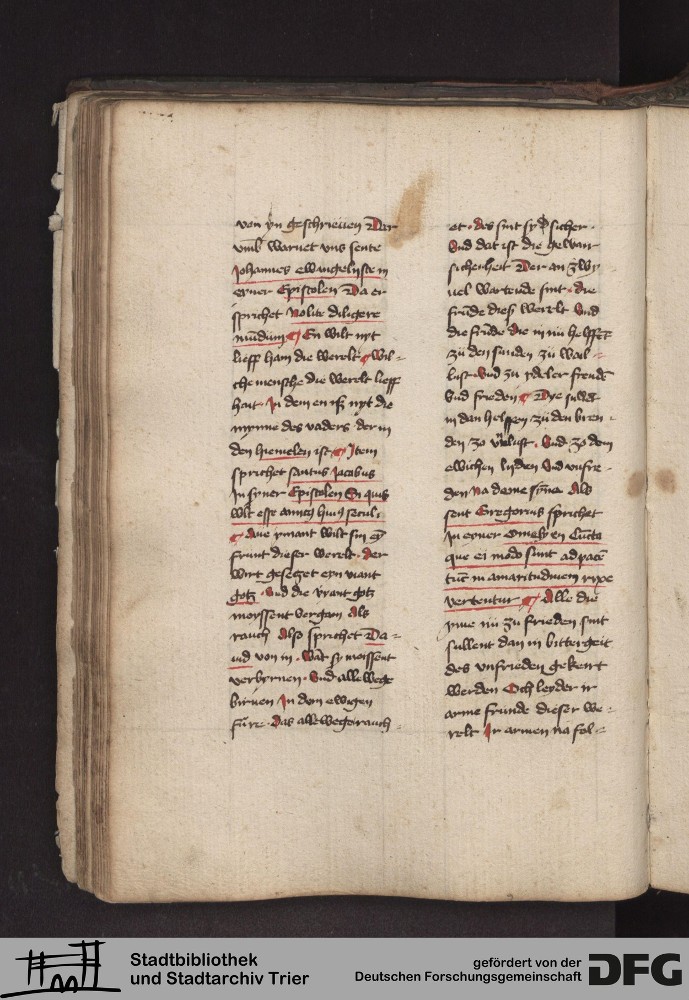 von yn geschrieuen Dar
vmb warnet vns sente
Johannes ewangeliste in
eyner Epistolen Da er
sprichet Nolite diligere
mūdum En wilt nyt
lieff han die werelt wil-
che mensche die werelt lieff
hait. In dem en ist nyt die
mynne des vaders der in
den hiemelen ist Item
sprichet santus Jacobus
In syner Epistolen Si quis
wlt esse amicus huius seculi
wilt sin
frunt dieser werelt. der
wirt geseczet eyn viant
gotz. Vnd die viant gotz
moyssent vergan Als
rauch Also sprichet Da-
uid von in. sy moissent
verbyrnen. Vnd alle wege
birnen In dem ewigen
fure. Das alle wege rauch-
et. des sint sy sicher.
Vnd dat ist die
sicherheit Der an zwy-
uel wartende sint. die
frūde dieß werelt Vnd
die frūde die in nu helffēt
zu den sunden zu wail-
lust. Vnd zu ydeler freudē
Vnd frieden Dye
in dan helffen zu den bren-
den zo lust. Vnd zo dem
ewichen lyden Vnd vnfre-
den Na deme Als
sent Gregorius sprichet
In eyner Omelyen Cuncta
que ei modo sunt ad pacē
tūc in amaritudinem
vertentur Alle die
yme nu zu frieden sint
sullent dan in bittergeit
des vnfrieden gekeirt
werden Och leyder ir
arme frunde dieser we-
relt Ir armen na fol-
Stadtbibliothek
und Stadtarchiv Trier
gefördert von der
Deutschen Forschungsgemeinschaft
DFG